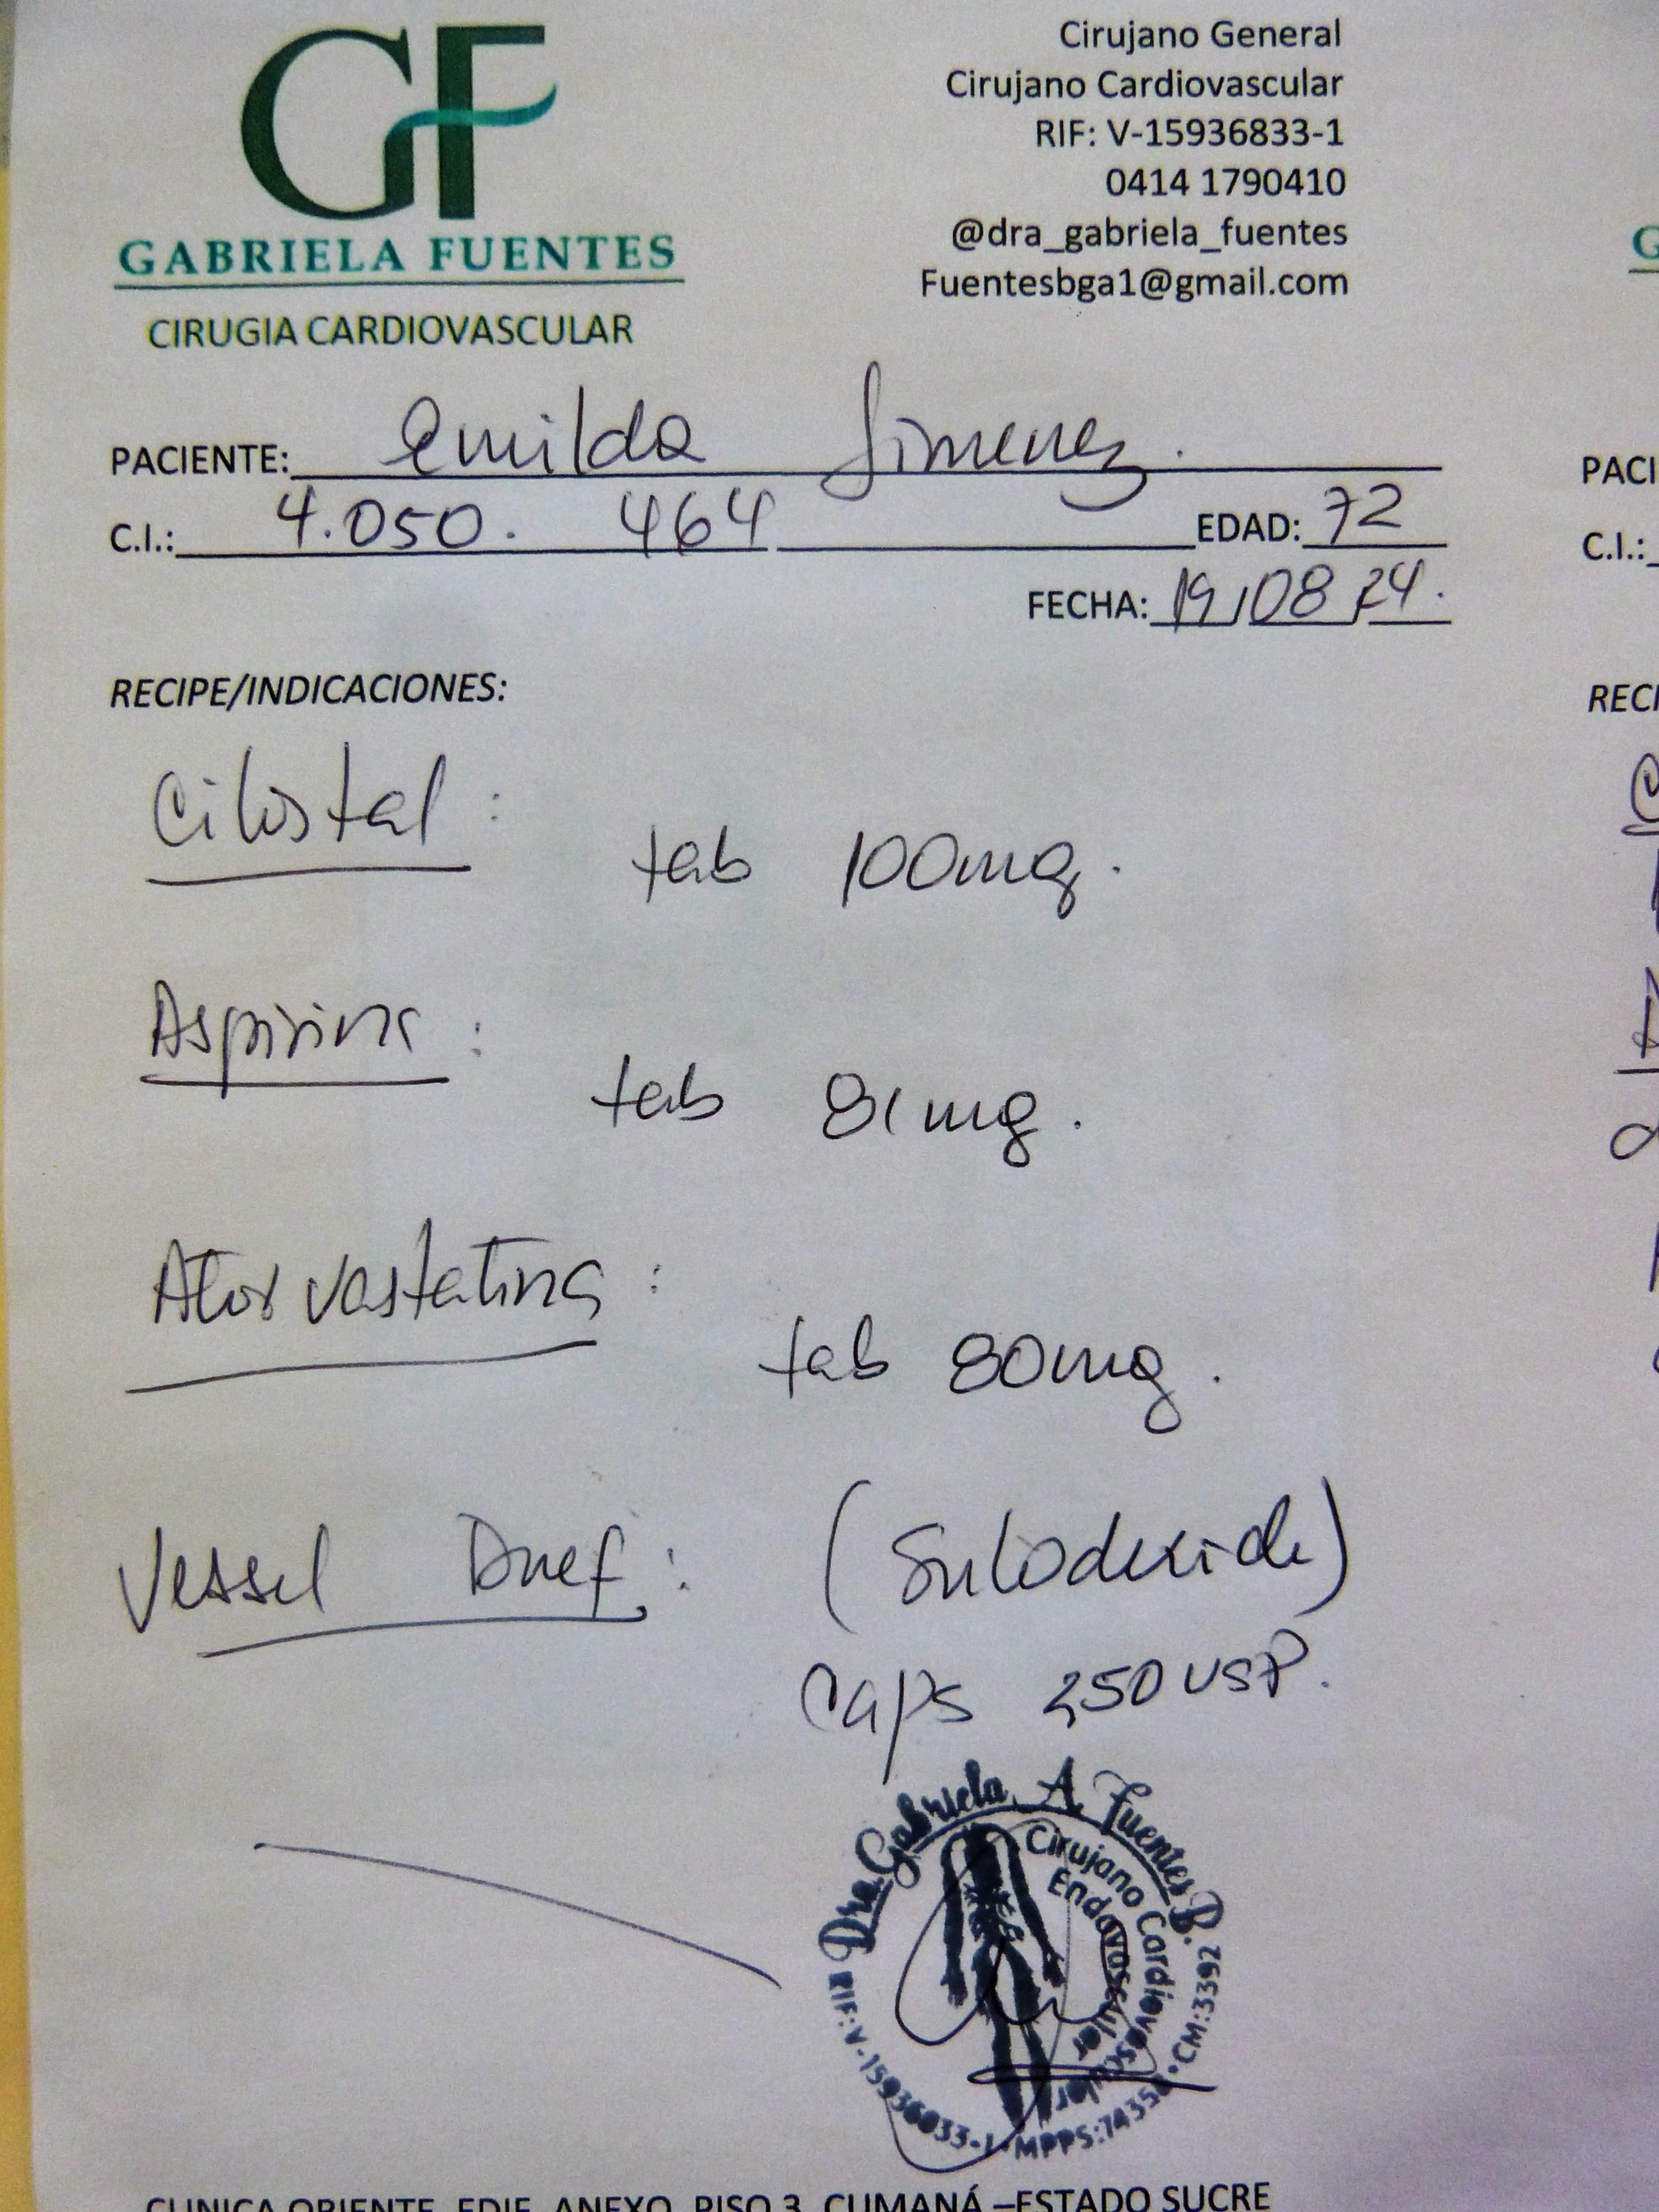 GF
GABRIELA FUENTES
CIRUGIA CARDIOVASCULAR
Cirujano General
Cirujano Cardiovascular
RIF: V-15936833-1
0414 1790410
@dra_gabriela_fuentes
Fuentesbga1@gmail.com
PACIENTE: Emilda Jimenez.
C.I.: 4.050. 464 EDAD: 72
FECHA: 19/08/24.
RECIPE/INDICACIONES:
Cilostal:
tab 100mg.
Aspirina:
tab 81mg.
Atorvastatina:
tab 80mg.
Vessel Duef: (Sulodexide)
Caps 250 USP.
Dra. Gabriela A Fuentes B.
Cirujano Cardiovascular
Endovascular
RIF:V-15936833-1 • MPPS:74356 • CM:3392
CLINICA ORIENTE, EDIF. ANEXO, PISO 3, CUMANÁ –ESTADO SUCRE
G
PACI
C.I.:
RECI